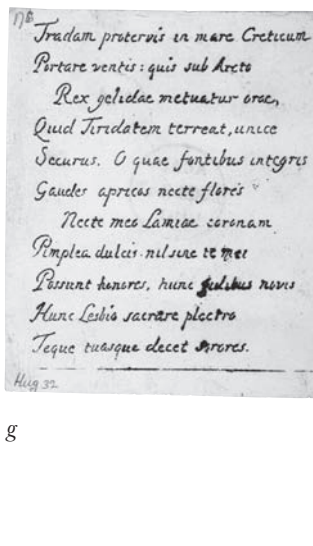 176
Tradam protervis in mare Creticum
Portare ventis: quis sub Arcto
Rex gelidae metuatur orae,
Quid Tiridatem terreat, unice
Securus. O quae fontibus integris
Gaudes apricos necte flores
Necte meo Lamiae coronam
Pimplea dulcis. nil sine te mei
Possunt honores, hunc fidibus novis
Hunc Lesbio sacrare plectro
Teque tuasque decet sorores.
Hug 32
g